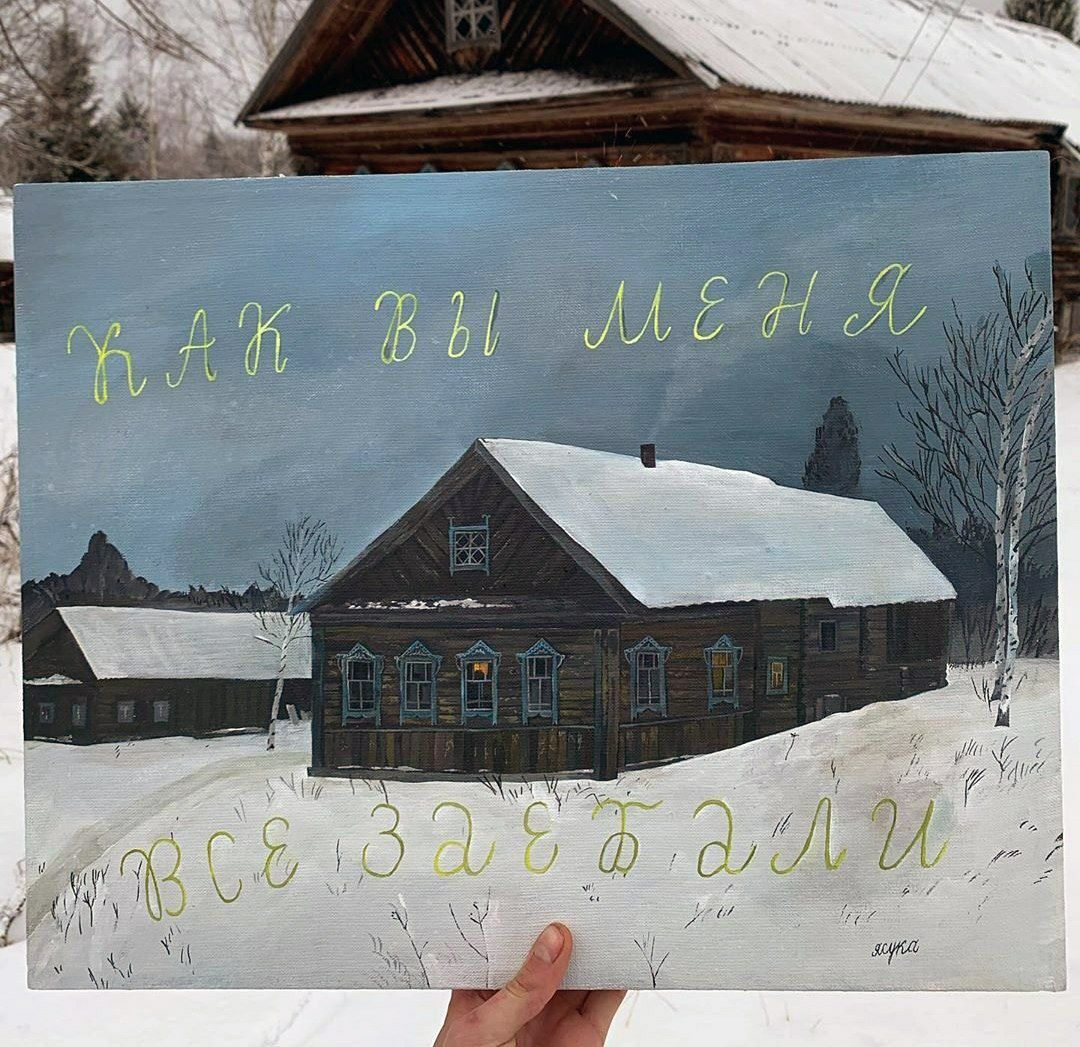 КАК ВЫ МЕНЯ
ВСЕ ЗАЕБАЛИ
ясука